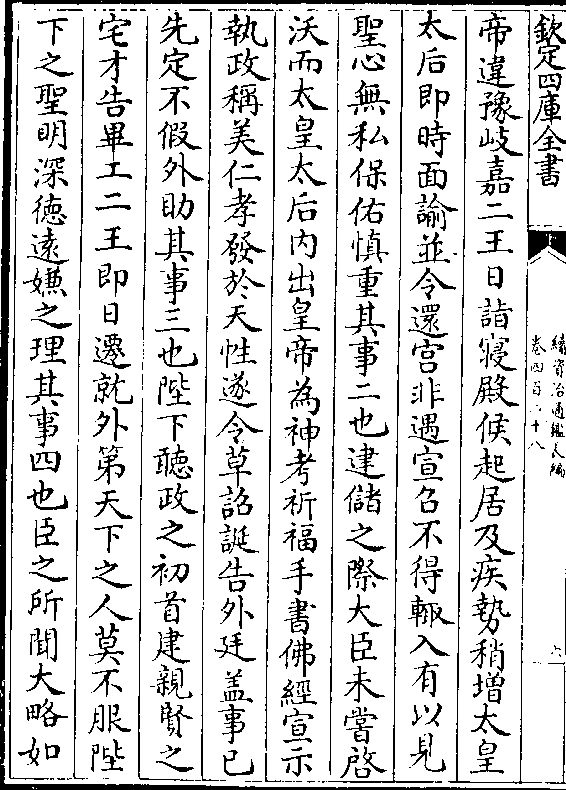 欽定四庫全書
續資治通鑑長編
卷四百二十八
帝違豫岐嘉二王日詣寢殿候起居及疾勢稍增太皇
太后即時面諭並令還宫非遇宣召不得輙入有以見
聖心無私保佑慎重其事二也建儲之際大臣未嘗啓
沃而太皇太后内出皇帝為神考祈福手書佛經宣示
執政稱美仁孝發於天性遂令草詔誕告外廷盖事已
先定不假外助其事三也陛下聽政之初首建親賢之
宅才告畢工二王即日遷就外第天下之人莫不服陛
下之聖明深徳遠嫌之理其事四也臣之所聞大略如